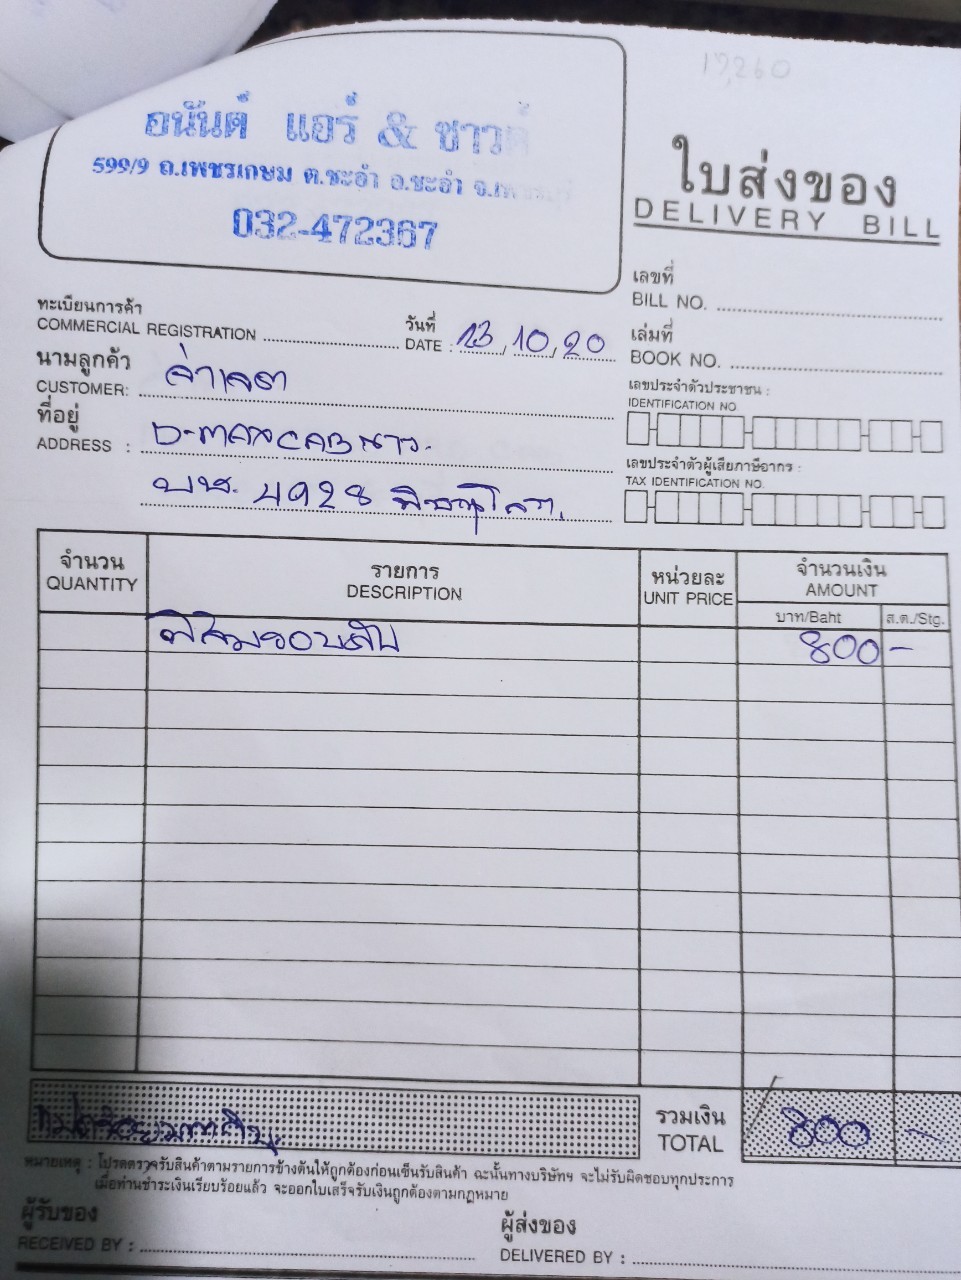 17,260
อนันต์ แอร์ & ซาวด์
599/9 ถ.เพชรเกษม ต.ชะอำ อ.ชะอำ
032-472367
ใบส่งของ
DELIVERY BILL
เลขที่
BILL NO.
ทะเบียนการค้า
COMMERCIAL REGISTRATION
วันที่
DATE : 13,10,20
เล่มที่
BOOK NO.
นามลูกค้า
CUSTOMER:
เลขประจำตัวประชาชน :
IDENTIFICATION NO
ที่อยู่
ADDRESS : D-MAX CAB ขาว.
เลขประจำตัวผู้เสียภาษีอากร :
TAX IDENTIFICATION NO.
บษ. 4928 พิษณุโลก.
จำนวน
QUANTITY
รายการ
DESCRIPTION
หน่วยละ
UNIT PRICE
จำนวนเงิน
AMOUNT
บาท/Baht
ส.ต./Stg.
ฟิล์มรอบคัน 800 -
รวมเงิน
TOTAL
800 -
หมายเหตุ : โปรดตรวจรับสินค้าตามรายการข้างต้นให้ถูกต้องก่อนเซ็นรับสินค้า ฉะนั้นทางบริษัทฯ จะไม่รับผิดชอบทุกประการ
เมื่อท่านชำระเงินเรียบร้อยแล้ว จะออกใบเสร็จรับเงินถูกต้องตามกฎหมาย
ผู้รับของ
RECEIVED BY :
ผู้ส่งของ
DELIVERED BY :